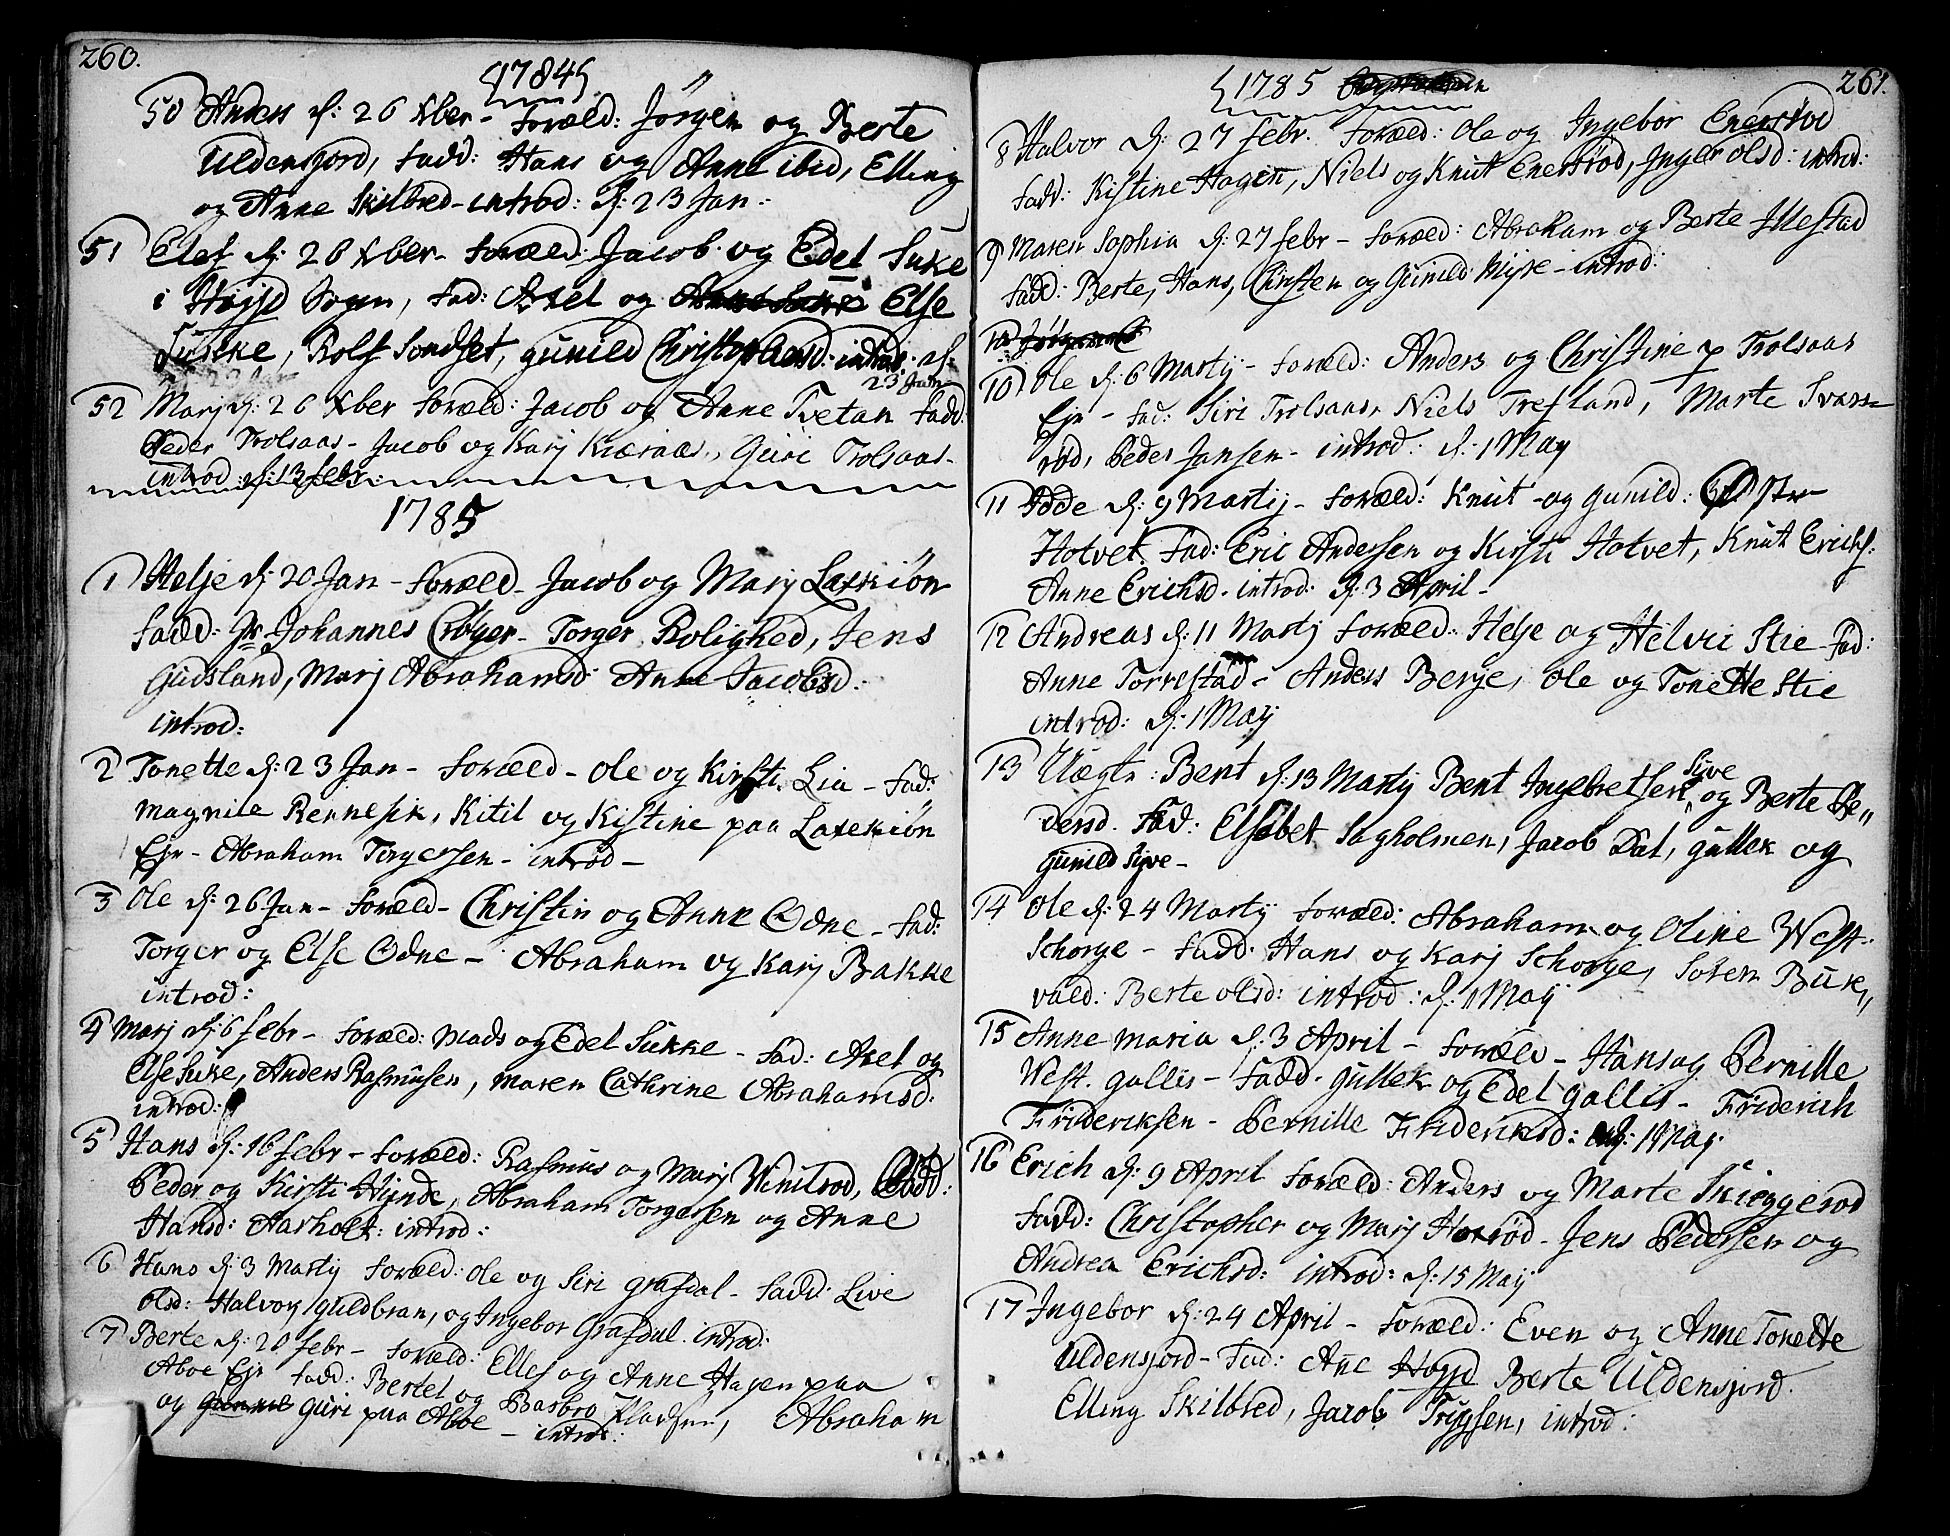 260.
1784
50 Anders d: 26 Xber - foræld: Jörgen og Berte
Uldensjord, fadd: Hans og Anne ibid, Elling
og Anne Skilbred - introd: d: 23 Jan:
51 Elef d: 26 Xber - foræld: Jacob og Edel Suke
i Hojsd Sogn, fad: Axel og Else
Suke, Rolf Sondset, gunild Christophersd: introd: d:
23 Jan
52 Marj d: 26 Xber foræld: Jacob og Anne Tvetan fadd:
Peder Trolsaas - Jacob og Karj Kiæraas, Guri Trolsaas -
introd: d: 13 febr:
1785
1 Helje d: 20 Jan - foræld - Jacob og Marj Laxkiön
fadd: Hr Johannes Cröger - Torger Rolighed, Jens
Gudsland, Marj Abrahamsd: Anne Jacobsd:
introd:
2 Tonette d: 23 Jan - foræld - Ole og Kirsti Lia - fad:
magnile Rennesik, Kitil og Kistine paa Laxekiön
Ejn - Abraham Torgersen - introd -
3 Ole d: 26 Jan - foræld - Christin og Anne Odne - fad:
Torger og Else Odne - Abraham og Karj Bakke
introd:
4 Marj d: 6 febr - foræld: Mads og Edel Sukke - fad: Axel og
Else Suke, Anders Rasmusen, maren Cathrine Abrahamsd:
introd:
5 Hans d: 16 febr - foræld: Rasmus og Marj Vinitrod, fadd:
Peder og Kirsti Hynde, Abraham Torgersen og Anne
Hansd: Aarholt: introd:
6 Hans d: 3 Martij foræld: Ole og Siri grafdal - fadd: Live
Olsd: Halvor, guldbran, og Ingebor Grafdal. introd:
7 Berte d: 20 febr - foræld: Ellef og Anne Hagen paa
Aboe Ejn fadd: Bertel og Barbro Pladsen, Abraham
og guri paa Aboe - introd:
1785
261.
8 Halvor d: 27 febr. foræld: Ole og Ingebor Enersröd
fadd: Kistine Hagen, Niels og Knut Enersröd, Inger Olsd: introd:
9 Maren Sophia d: 27 febr - foræld: Abraham og Berte Illestad
fadd: Berte, Hans, Christen og Gunild Myre - introd:
10 Ole d: 6 Martij - foræld: Anders og Christine p Trolsaas
Ejn - fad: Siri Trolsaas, Niels Trefland, Marte Svars-
röd, Peder Jansen - introd: d: 1 May
11 Adde d: 9 Martij - foræld: Knut og gunild: Östr
Hotvet. fad: Eric Andersen og Kirsti Hotvet, Knut Erichs:
Anne Erichsd. introd: d: 3 April -
12 Andreas d: 11 Martij foræld: Helje og Helvii Stie fad:
Anne Torrestad - Anders Berje, Ole og Tonette Stie
introd: d: 1 Maij
13 Uægte: Bent d: 13 Martij Bent Ingebretsen Syve og Berte Pe„
dersd. fad: Elsebet Sagholmen, Jacob Dal, gullek og
gunild Syve -
14 Ole d: 24 Martij foræld: Abraham og Oline West-
Schorge - fadd: Hans og Karj Schorge, Soren Bure„
vald: Berte Olsd: introd: d: 1 Maij
15 Anne maria d: 3 April - foræld - Hans og Pernille
West. gallis - fadd - gullek og Edel gallis - Friderich
Frideriksen - Pernille Frideriksd: d: 1 May
16 Erich d: 9 April foræld: Anders og Marte Skieggerod
fadd: Christopher og Marj Horröd - Jens Pedersen og
Andrea Erichsd: introd: d: 15 Maij
17 Ingebor d: 24 April - foræld: Even og Anne Tonette
Uldensjord - fad: Ane Hojsd Berte Uldensjord.
Elling Skilbred, Jacob Trygsen, introd: